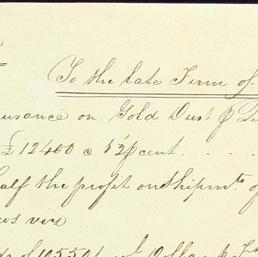 To the late Firm of
surance on Gold Dust p
£12400 @ ½ p cent
alf the profit on shipmts of
ws viz
of 10550